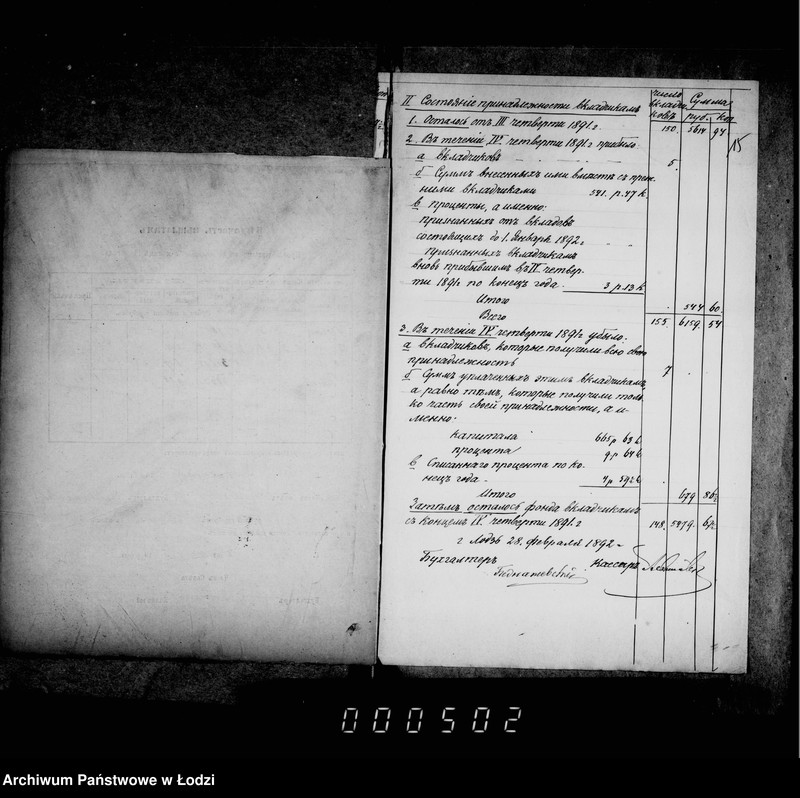 число вкладчиковъ
Сумма
руб. коп
15
II Состояніе принадлежности вкладчикамъ
1. Осталось отъ III четверти 1891 г. 150. 5614 94
2. Въ теченіи IV четверти 1891 г прибыло
а вкладчиковъ 5.
б Суммъ внесенныхъ ими вмѣстѣ съ преж-
ними вкладчиками 541. р. 47 к.
в проценты, а именно:
признанныхъ отъ вкладовъ
состоящихъ до 1. Января 1892 г
признанныхъ вкладчикамъ
вновь прибывшимъ въ IV четвер-
ти 1891 г по конецъ года. 3 р. 13 к
Итого 544 60.
Всего 155. 6159. 54
3. Въ теченіи IV четверти 1891 г убыло.
а вкладчиковъ, которые получили всю свою
принадлежность 7
б Суммъ уплаченныхъ этимъ вкладчикамъ,
а равно тѣмъ, которые получили толь
ко часть своей принадлежности, а и-
менно.
капитала 665 р
процента 9 р 64 к
в Списаннаго процента по ко-
нецъ года.
Итого 679 86
Затѣмъ осталось фонда вкладчикамъ
съ концемъ IV четверти 1891 г 148. 5479.
г Лодзь 28. февраля 1892 г
Бухгалтеръ
Кассиръ
000502
Archiwum Państwowe w Łodzi